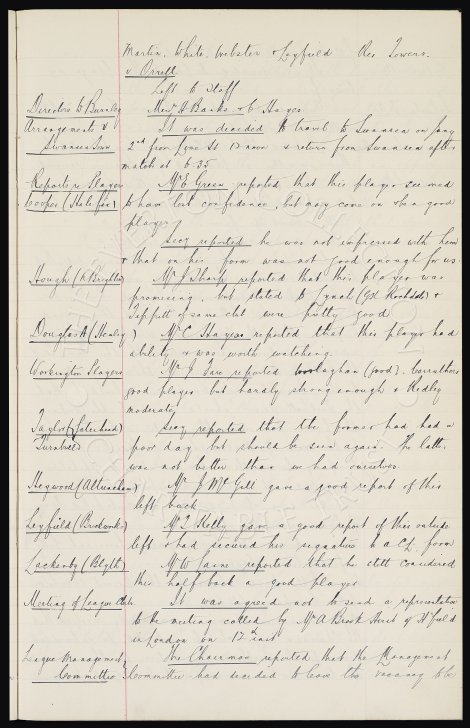 Martin, White, Webster & Leyfield the Towers.
v Orrell
Left to Staff
Directors to Burnley Messrs H Banks & C Hayes
Arrangements v It was decided to travel to Swansea on Jany
Swansea Town 2nd from Lime St 12 noon & return from Swansea after
match at 6-35
Reports re Players Mr E Green reported that this player seemed
Cooper (Halifax) to have lost confidence, but may come on & be a good
player
Secy reported he was not impressed with him
& that on his form was not good enough for us.
Hough (N Brighton) Mr J Sharp reported that this player was
promising, but stated that Lynch (Gt Rochdale) &
of same club were pretty good
Douglas A (Stanley) Mr C Hayes reported that this player had
ability & was worth watching.
Workington Players Mr J reported (good). Carruthers
good player but hardly strong enough & Hedley
moderate,
Taylor (Gateshead) Secy reported that the former had had a
Turnbull poor day but should be seen again. The latter
was not better than we had ourselves.
Heywood (Altrincham) Mr J McGill gave a good report of this
left back
Leyfield (Brickworks) Mr T Kelly gave a good report of this outside
left & had secured his signature to a C.L. form
Lackenby (Blyth) Mr W reported that he still considered
this half back a good player
Meeting of League Clubs It was agreed not to send a representative
to the meeting called by Mr A Brook Hirst of H'field
in London on 17th inst
League Management The Chairman reported that the Management
Committee Committee had decided to leave the vacancy to be